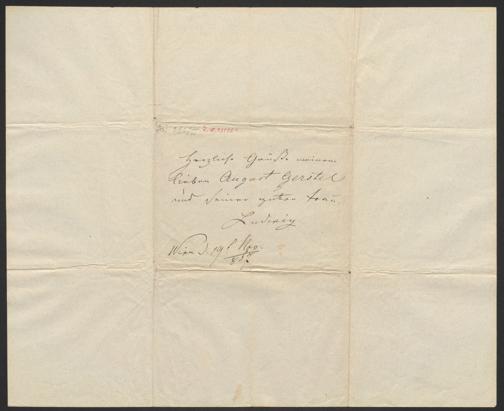 Herzliche Grüße meinem
lieben August Gerstel
und seiner guten Frau.
Ludwig
Wien d. 19t Nov.